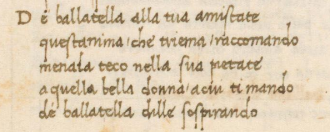 D e ballatella alla tua amistate
questanima / che triema / raccomando
menala teco nella sua pietate
aquella bella donna / acui ti mando
de ballatella dille sospirando